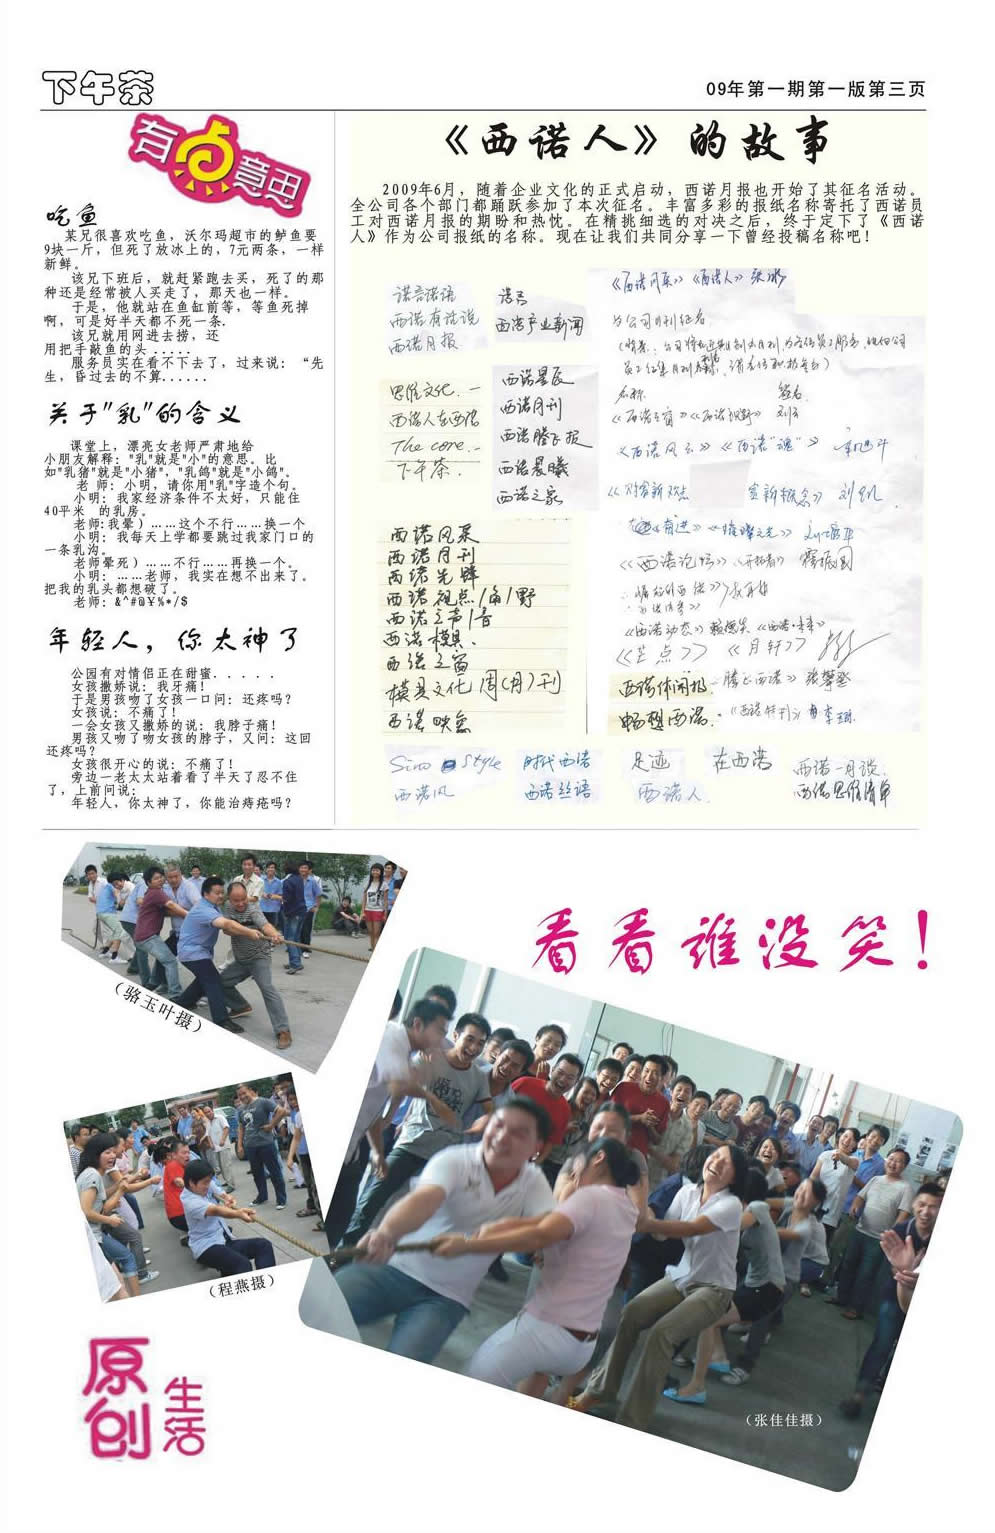 下午茶
09年第一期第一版第三页
有点意思
吃鱼
某兄很喜欢吃鱼，沃尔玛超市的鲈鱼要
9块一斤，但死了放冰上的，7元两条，一样
新鲜。
该兄下班后，就赶紧跑去买，死了的那
种还是经常被人买走了，那天也一样。
于是，他就站在鱼缸前等，等鱼死掉
啊，可是好半天都不死一条.
该兄就用网进去捞，还
用把手敲鱼的头 .....
服务员实在看不下去了，过来说：“先
生，昏过去的不算......
关于"乳"的含义
课堂上，漂亮女老师严肃地给
小朋友解释："乳"就是"小"的意思。比
如"乳猪"就是"小猪"，"乳鸽"就是"小鸽"。
老 师：小明，请你用"乳"字造个句。
小明：我家经济条件不太好，只能住
40平米 的乳房。
老师:我晕）……这个不行……换一个
小明：我每天上学都要跳过我家门口的
一条乳沟。
老师晕死）……不行……再换一个。
小明：……老师，我实在想不出来了。
把我的乳头都想破了。
老师：&^#@¥%*/$
年轻人，你太神了
公园有对情侣正在甜蜜．．．．．
女孩撒娇说：我牙痛！
于是男孩吻了女孩一口问：还疼吗？
女孩说：不痛了！
一会女孩又撒娇的说：我脖子痛！
男孩又吻了吻女孩的脖子，又问：这回
还疼吗？
女孩很开心的说：不痛了！
旁边一老太太站着看了半天了忍不住
了，上前问说：
年轻人，你太神了，你能治痔疮吗？
《西诺人》的故事
2009年6月，随着企业文化的正式启动，西诺月报也开始了其征名活动。
全公司各个部门都踊跃参加了本次征名。丰富多彩的报纸名称寄托了西诺员
工对西诺月报的期盼和热忱。在精挑细选的对决之后，终于定下了《西诺
人》作为公司报纸的名称。现在让我们共同分享一下曾经投稿名称吧！
诺言诺语
西诺有话说
西诺月报
诺言
西诺产业新闻
《西诺月采》《西诺人》
为公司月刊征名
名称 签名
《西诺之窗》《西诺视野》
《西诺风云》《西诺"魂"》
思维文化
西诺人在西诺
The core
下午茶
西诺星辰
西诺月刊
西诺腾飞报
西诺晨曦
西诺之家
《西诺论坛》《开拓者》
西诺风采
西诺月刊
西诺先锋
西诺视点/角/野
西诺之声/音
西诺模具
西诺之窗
模具文化 周(月)刊
西诺映象
《西诺动态》
《芒点》 《月轩》
西诺休闲报
畅想西诺
《腾飞西诺》
《西诺特刊》
Sino Style
西诺风
时代西诺
西诺丝语
足迹
西诺人
在西诺
西诺一月谈
西诺思维清单
看看谁没笑！
（骆玉叶摄）
（程燕摄）
（张佳佳摄）
原创
生活